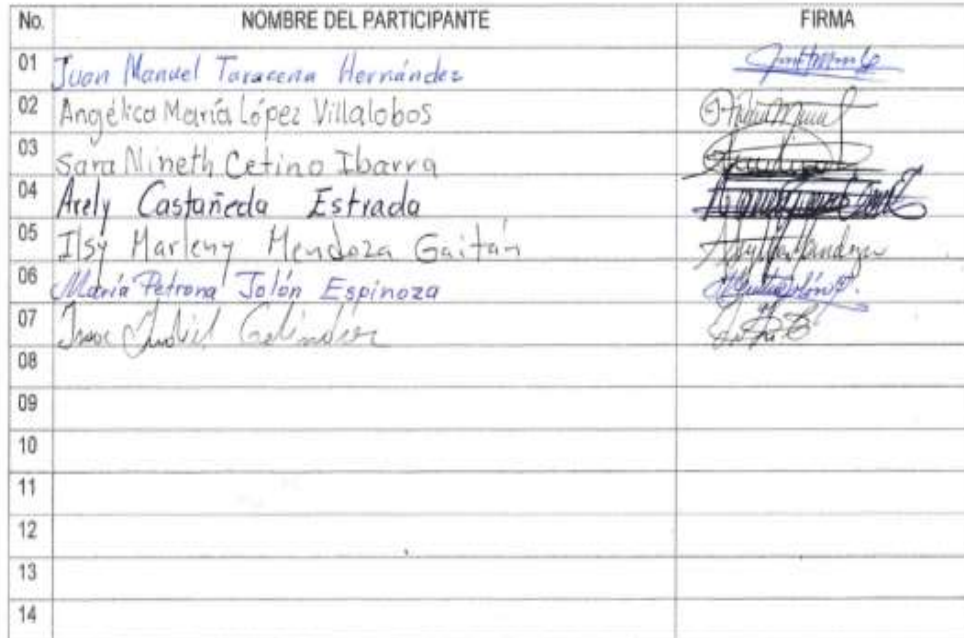 No. NOMBRE DEL PARTICIPANTE FIRMA
01 Juan Manuel Taracena Hernández
02 Angélica María López Villalobos
03 Sara Nineth Cetino Ibarra
04 Arely Castañeda Estrada
05 Ilsy Marleny Mendoza Gaitán
06 María Petrona Jolón Espinoza
07
08
09
10
11
12
13
14